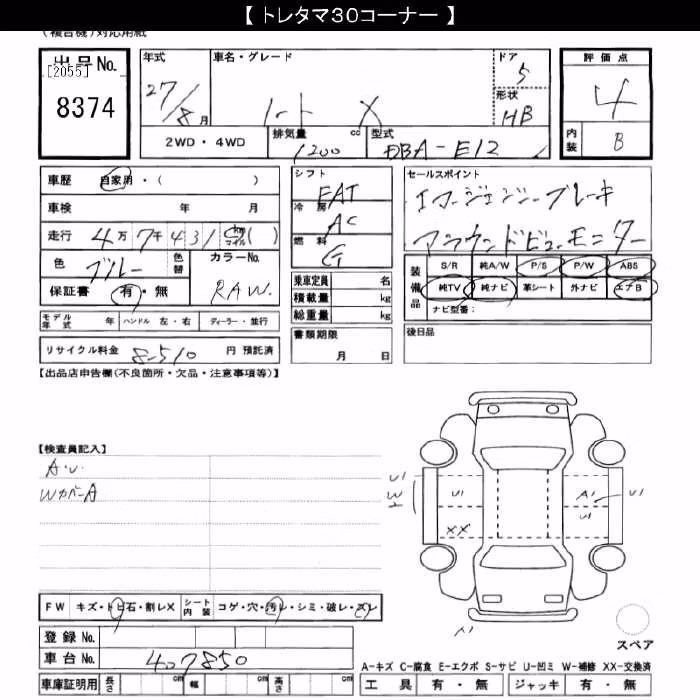 【 トレタマ30コーナー 】
(複合機)対応用紙
出品No.
[2055]
8374
年式 車名・グレード ドア 評価点
27/8月 ノート X 5 4
形状 HB
2WD・4WD 排気量 cc 1200 型式 DBA-E12 内装 B
車歴 自家用・( )
車検 年 月
走行 4万7千431 km マイル ( )
色 ブルー 色替 カラーNo. RAW
保証書 有・無
モデル年式 年 ハンドル 左・右 ディーラー・並行
リサイクル料金 8510 円 預託済
シフト FAT
冷房 AC
燃料 G
乗車定員 名
積載量 kg
総重量 kg
書類期限
月 日
セールスポイント
エマージェンシーブレーキ
アラウンドビューモニター
装備品 S/R 純A/W P/S P/W ABS
純TV 純ナビ 革シート 外ナビ エアB
ナビ型番:
後日品
【出品店申告欄(不良箇所・欠品・注意事項等)】
【検査員記入】
A.U.
WカバーA
U1 W U1 A1 U1
U1
XX
A1
スペア
FW キズ・トビ石・割レX シート内装 コゲ・穴・汚レ・シミ・破レ・スレ
登録 No.
車台 No. 407850
車庫証明用 長さ cm 幅 cm 高さ cm
A-キズ C-腐食 E-エクボ S-サビ U-凹ミ W-補修 XX-交換済
工具 有・無 ジャッキ 有・無